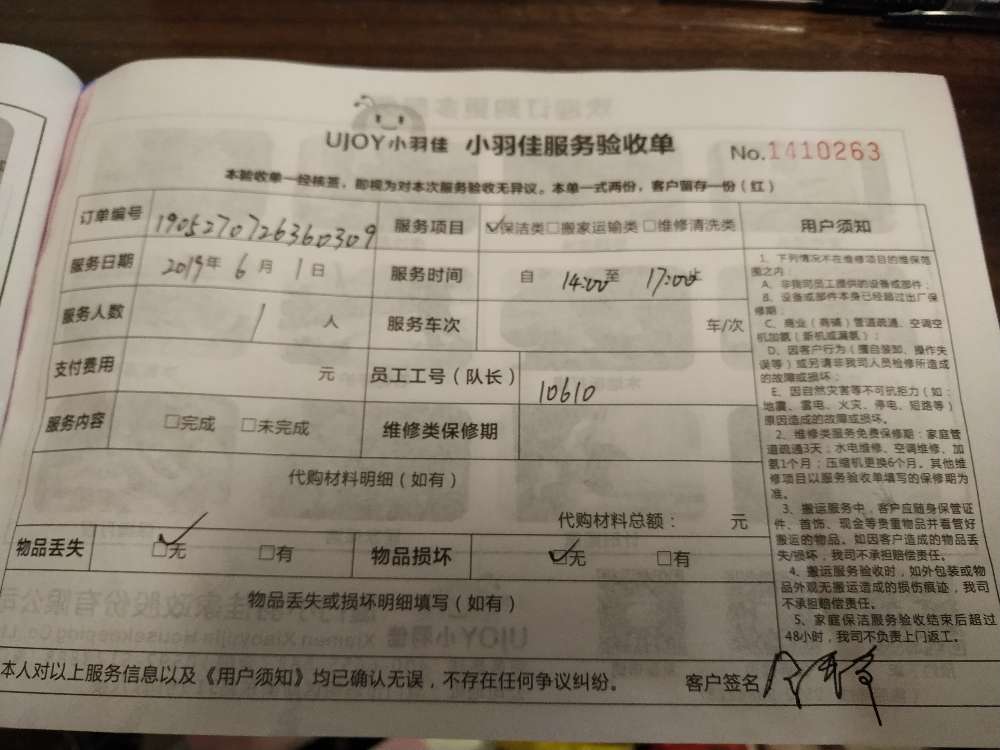 UJOY小羽佳 小羽佳服务验收单 No.1410263
本验收单一经核签，即视为对本次服务验收无异议。本单一式两份，客户留存一份（红）
订单编号 19052707263360309 服务项目 ☑保洁类□搬家运输类□维修清洗类
服务日期 2019年 6月 1日 服务时间 自 14:00至 17:00止
服务人数 1 人 服务车次 车/次
支付费用 元 员工工号（队长） 10610
服务内容 □完成 □未完成 维修类保修期
代购材料明细（如有）
代购材料总额： 元
物品丢失 ☑无 □有 物品损坏 ☑无 □有
物品丢失或损坏明细填写（如有）
用户须知
1、下列情况不在维修项目的维保范
围之内：
A、非我司员工提供的设备或部件；
B、设备或部件本身已经超过出厂保
修期；
C、商业（商铺）管道疏通、空调空
机加氨（新机或漏氨）；
D、因客户行为（擅自装卸、操作失
误等）或另请非我司人员检修所造成
的故障或损坏；
E、因自然灾害等不可抗拒力（如：
地震、雷电、火灾、停电、短路等）
原因造成的故障或损坏。
2、维修类服务免费保修期：家庭管
道疏通3天；水电维修、空调维修、加
氨1个月；压缩机更换6个月。其他维
修项目以服务验收单填写的保修期为
准。
3、搬运服务中，客户应随身保管证
件、首饰、现金等贵重物品并看管好
搬运的物品。如因客户造成的物品丢
失/损坏，我司不承担赔偿责任。
4、搬运服务验收时，如外包装或物
品外观无搬运造成的损伤痕迹，我司
不承担赔偿责任。
5、家庭保洁服务验收结束后超过
48小时，我司不负责上门返工。
本人对以上服务信息以及《用户须知》均已确认无误，不存在任何争议纠纷。 客户签名